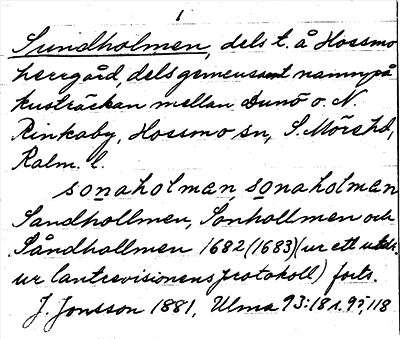 1
Sundholmen, dels t. å Hossmo
herrgård, dels gemensamt namn på
kuststräckan mellan Dunö o. N.
Rinkaby, Hossmo sn, S. Möre hd,
Kalm. l.
sonaholman, sonaholman
Sandhollmen, Sonhollmen och
Såndhollmen 1682 (1683) (ur ett utdr.
ur lantrevisionens protokoll) forts.
J. Jonsson 1881, Ulma 93:18 s. 95, 118